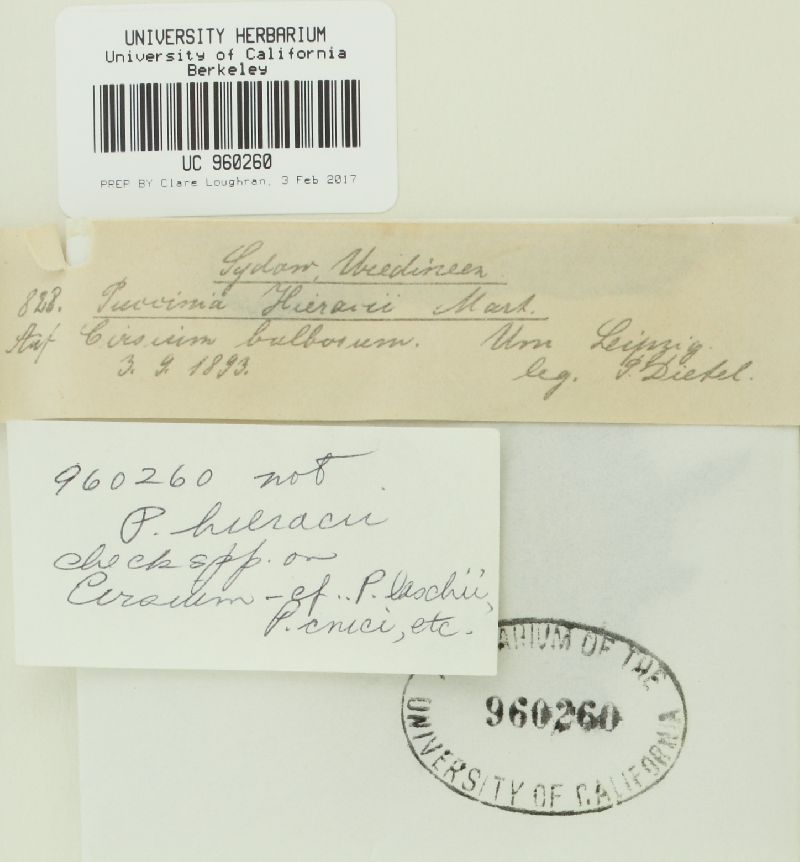 UNIVERSITY HERBARIUM
University of California
Berkeley
UC 960260
PREP BY Clare Loughran, 3 Feb 2017
Sydow, Uredineen
828. Puccinia Hieracii Mart.
Auf Cirsium bulbosum. Um Leipzig.
3. 9. 1893. leg. P. Dietel.
960260 not
P. hieracii
check spp. on
Cirsium - cf.. P. laschii,
P. cnici, etc.
ARIUM OF THE
960260
UNIVERSITY OF CALIFORNIA